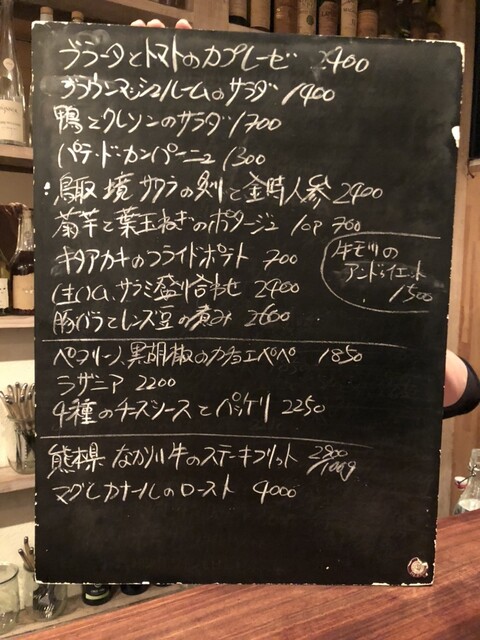 ブラータとトマトのカプレーゼ 2400
ブラウンマッシュルームのサラダ 1400
鴨とクレソンのサラダ 1700
パテ・ド・カンパーニュ 1300
鳥取 境 サワラの炙りと金時人参 2400
菊芋と葉玉ねぎのポタージュ 1op 700
キタアカリのフライドポテト 700
生ハム、サラミ盛り合わせ 2400
豚バラとレンズ豆の煮み 2600
牛モツの
アンドゥイエット
1500
ペコリーノ、黒胡椒のカチョエペペ 1850
ラザニア 2200
4種のチーズソースとパッケリ 2250
熊本県 なか川牛のステーキフリット 2900/100g
マグレカナールのロースト 4000